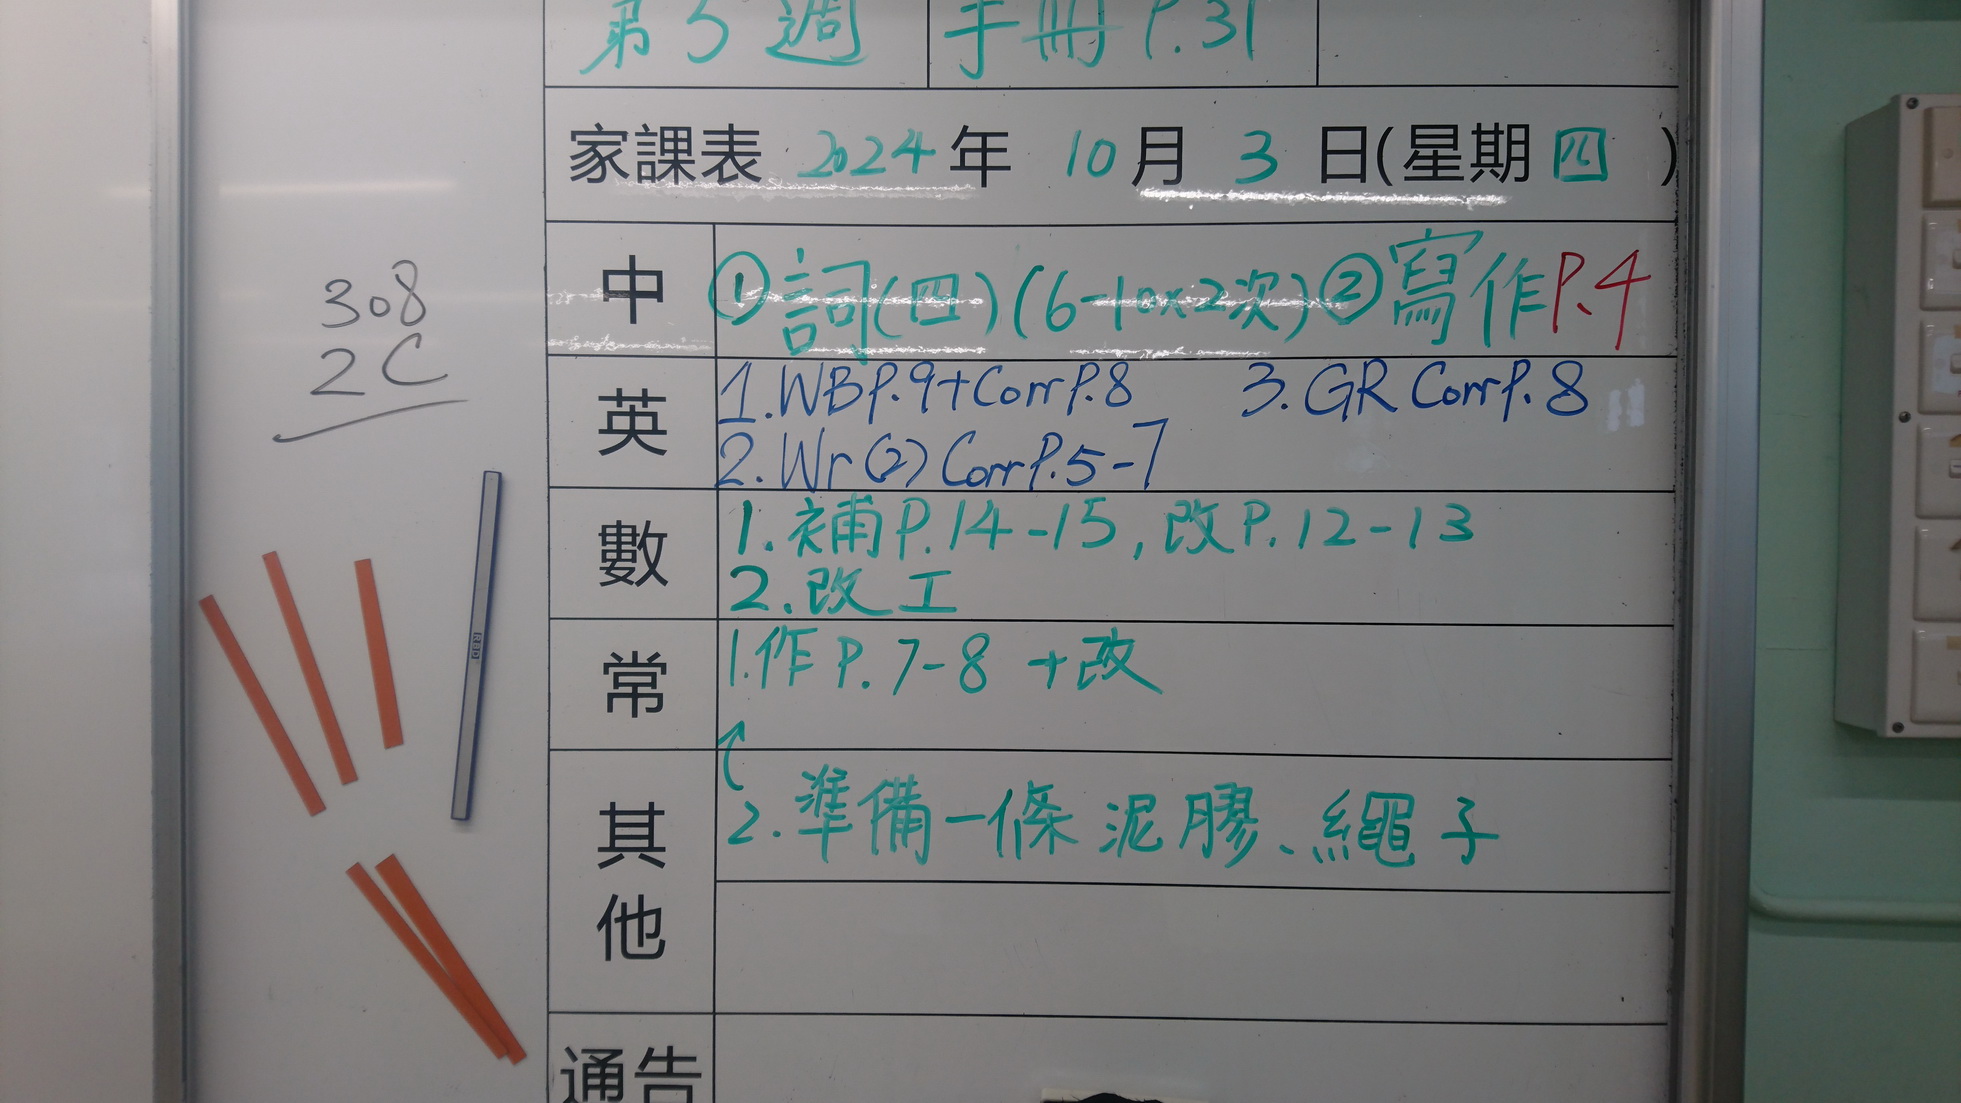 第5週 手冊 P.31
家課表 2024年 10月 3日(星期四)
308
2C
中 ①詞(四)(6-10x2次)②寫作P.4
英 1.WBP.9+CorrP.8 3.GR CorrP.8
2.Wr(2) CorrP.5-7
數 1.補P.14-15,改P.12-13
2.改工
常 1.作P.7-8 +改
其他 2.準備一條泥膠、繩子
通告